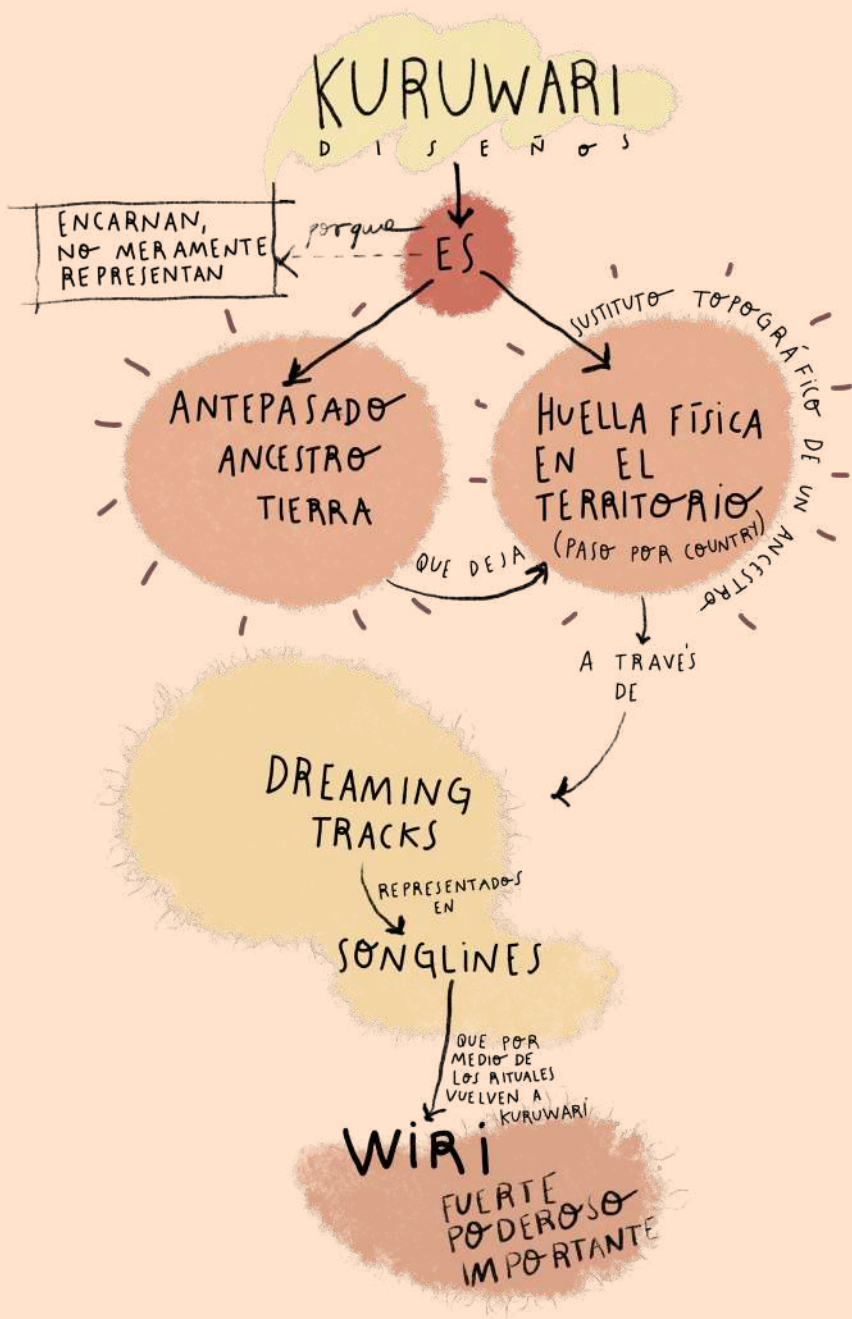 KURUWARI
DISEÑOS
ENCARNAN,
NO MERAMENTE
REPRESENTAN
porque
ES
SUSTITUTO TOPOGRÁFICO DE UN ANCESTRO
ANTEPASADO
ANCESTRO
TIERRA
HUELLA FÍSICA
EN EL
TERRITORIO
(PASO POR COUNTRY)
QUE DEJA
A TRAVÉS
DE
DREAMING
TRACKS
REPRESENTADOS
EN
SONGLINES
QUE POR
MEDIO DE
LOS RITUALES
VUELVEN A
KURUWARI
WIRI
FUERTE
PODEROSO
IMPORTANTE